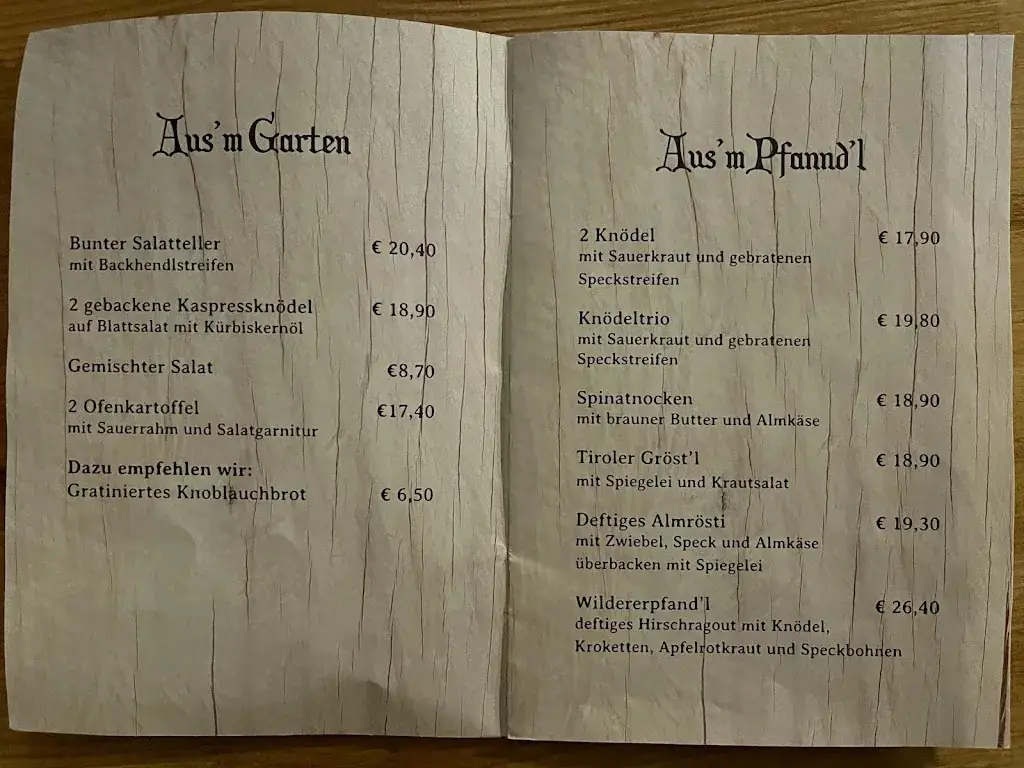 Aus'm Garten
Bunter Salatteller € 20,40
mit Backhendlstreifen
2 gebackene Kaspressknödel € 18,90
auf Blattsalat mit Kürbiskernöl
Gemischter Salat €8,70
2 Ofenkartoffel €17,40
mit Sauerrahm und Salatgarnitur
Dazu empfehlen wir:
Gratiniertes Knoblauchbrot € 6,50
Aus'm Pfannd'l
2 Knödel € 17,90
mit Sauerkraut und gebratenen
Speckstreifen
Knödeltrio € 19,80
mit Sauerkraut und gebratenen
Speckstreifen
Spinatnocken € 18,90
mit brauner Butter und Almkäse
Tiroler Gröst'l € 18,90
mit Spiegelei und Krautsalat
Deftiges Almrösti € 19,30
mit Zwiebel, Speck und Almkäse
überbacken mit Spiegelei
Wildererpfand'l € 26,40
deftiges Hirschragout mit Knödel,
Kroketten, Apfelrotkraut und Speckbohnen